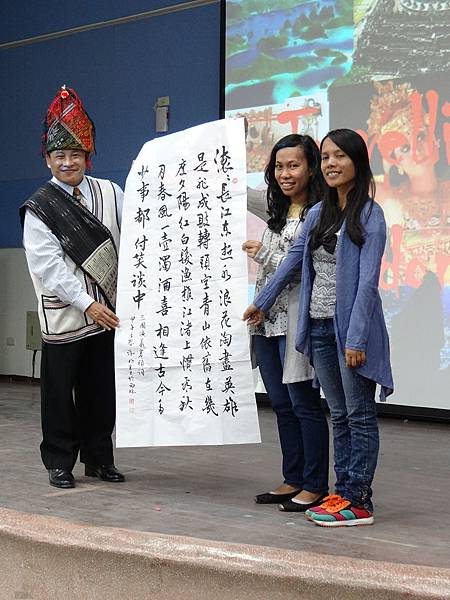 滾〻長江東逝水浪花淘盡英雄
是非成敗轉頭空青山依舊在幾
度夕陽紅白髮漁樵江渚上慣看秋
月春風一壺濁酒喜相逢古今多
少事都付笑談中
三國演義卷頭詞